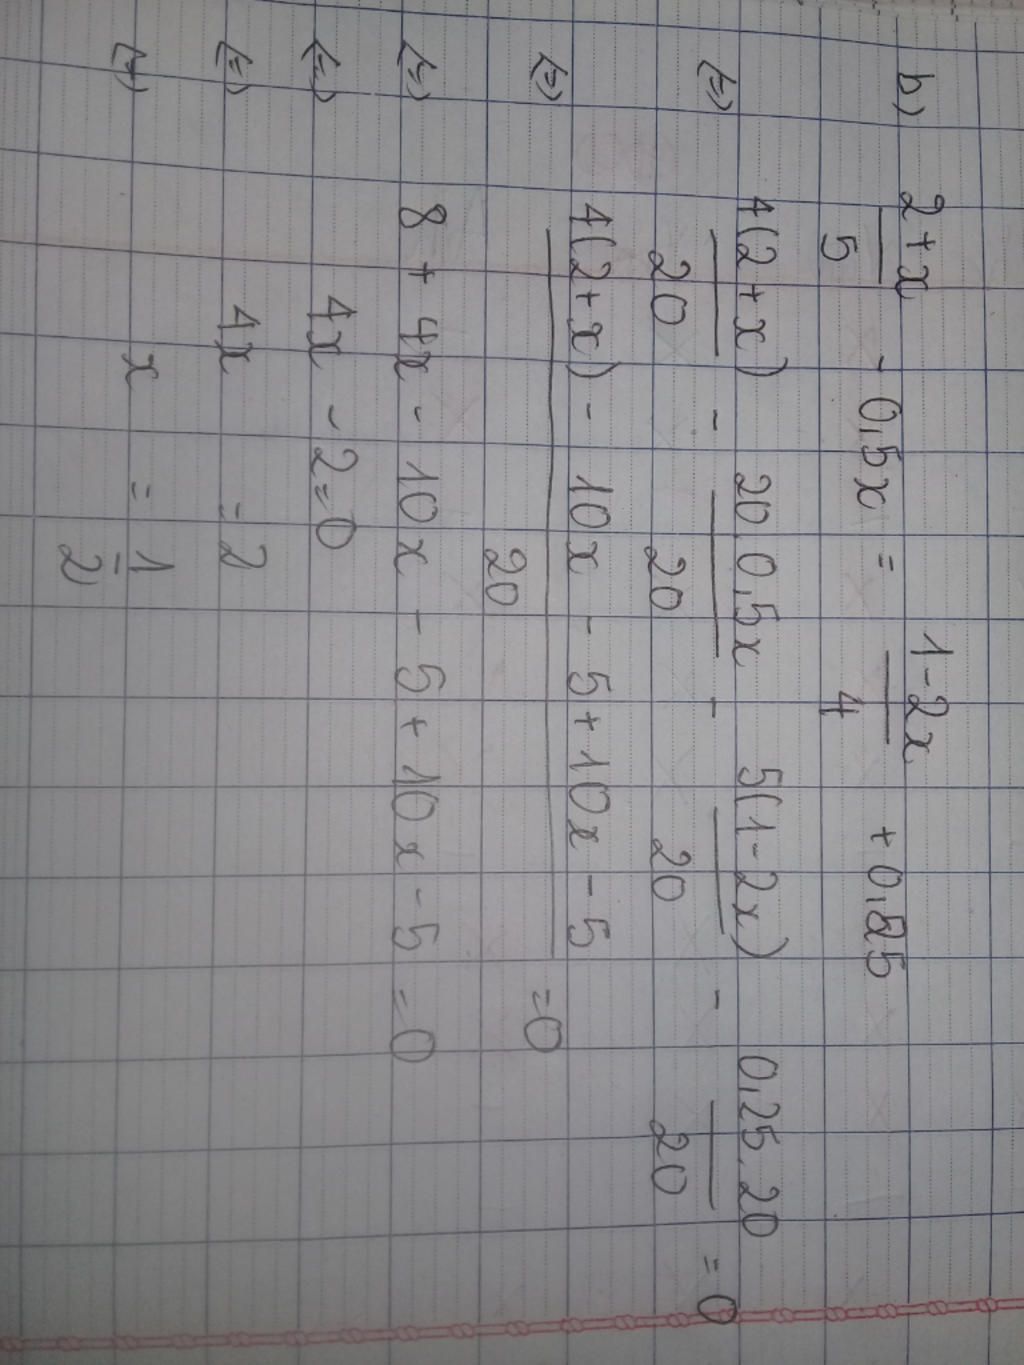 b) 2+x/5 - 0,5x = 1-2x/4 + 0,25
(=) 4(2+x)/20 - 20.0,5x/20 - 5(1-2x)/20 - 0,25.20/20 = 0
(=) 4(2+x) - 10x - 5+10x - 5/20 = 0
(=) 8 + 4x - 10x - 5 + 10x - 5 = 0
(=) 4x - 2 = 0
(=) 4x = 2
(=) x = 1/2